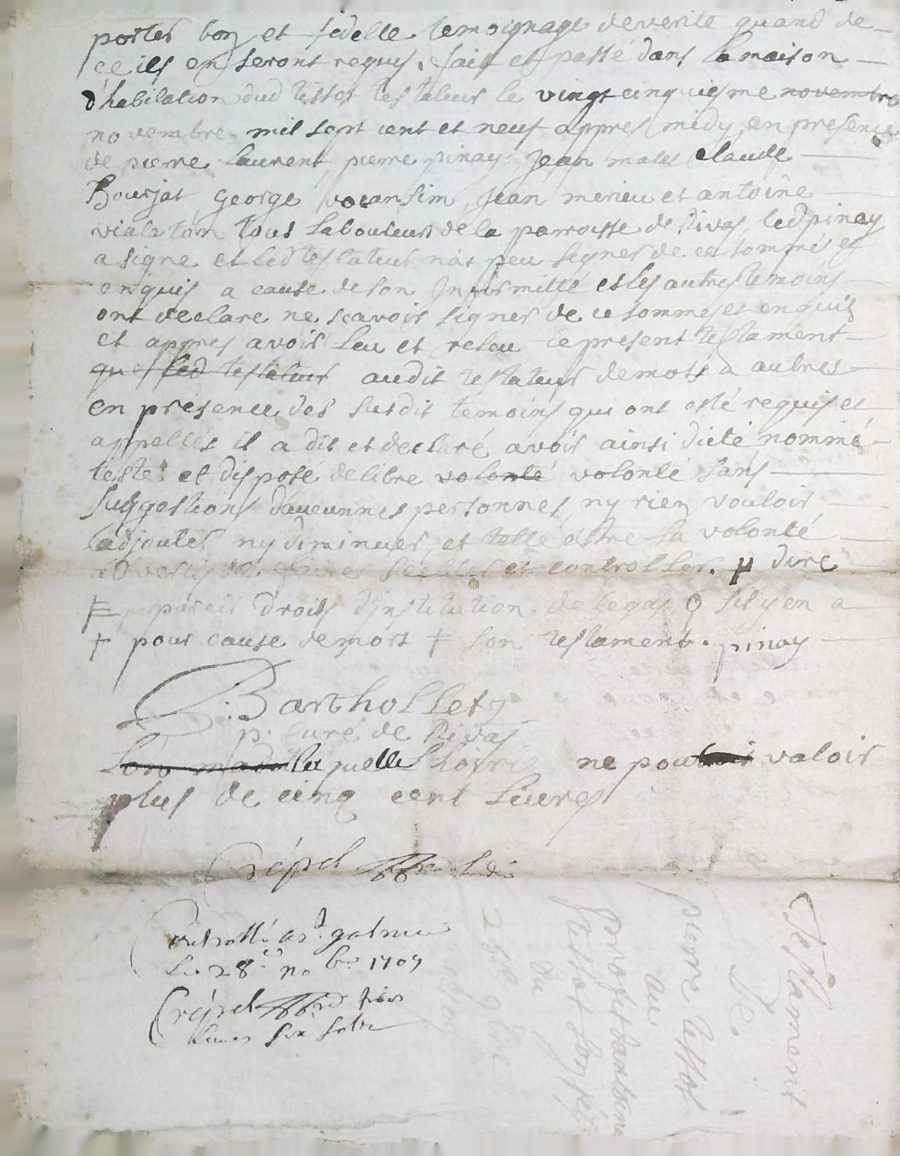 porter bon et fidelle temoignage de verite quand de
ce ils en seront requis. fait et passé dans la maison
d'habitation dud tissot testateur le vingt cinquiesme novembre
novembre mil sept cent et neuf appres midy en presence
de pierre laurent, pierre pinay, Jean mates claude
Bourjat george vocansim, Jean merieu et antoine
vialaton tous laboureurs de la parroisse de Rivas, led pinay
a signe et led testateur na peu signer de ce sommés et
enquis a cause de son Infirmitté et les autres temoins
ont declare ne scavoir signer de ce sommés et enquis
et appres avoir leu et releu le present testament
que led testateur audit testateur de mots a autres
en presence des susdit temoins qui ont esté requis et
appellés il a dit et declaré avoir ainsi dicté nommé
testé et disposé de libre volonté volonté sans
suggestions d'aucunnes personnes ny rien vouloir
adjouter ny diminuer, et telle estre sa volonté
de faire sceller et controller. dire
droit d'institution, de legat sil y en a
+ pour cause de mort son testament. pinay
Bartholley
p. curé de Rivas
laquelle hoirie ne pou valoir
plus de cinq cent livres
Crépet
Controllé a st galmier
Le 28e no bre 1709
Crépet
six sols
Testament
De
pierre tissot
au
proffit
tissot son fils
du
25e 9bre
1709